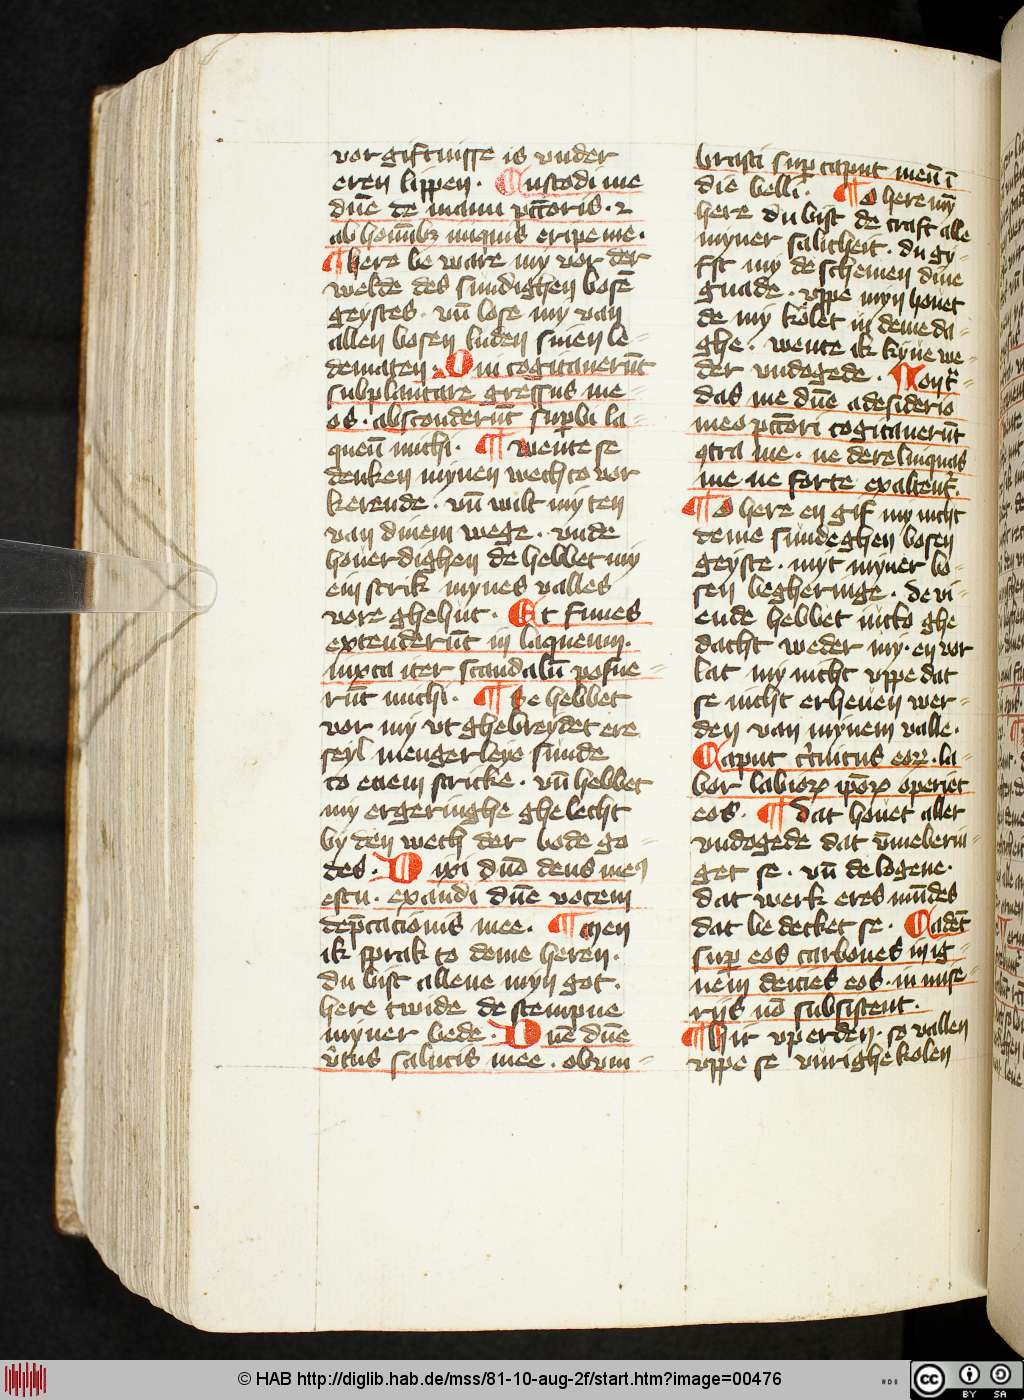 vorgiftnisse is vnder
eren lippen. Custodi me
dn̄e de manu pcc̄oris. ⁊
ab homīb₃ iniquis eripe me.
¶ here be ware my vor der
welde des sundighen bosē
geystes. vn̄ lose my van
allen bosen luden sinen le-
dematen. Qui cogitauerūt
subplantare gressus me-
os. absconderūt supbi la-
queū michi. ¶ wente se
denken mynen wech to vor
kerende. vn̄ wilt my ten
van dinem wege. vnde
houerdighen de hebbet my
ein strik mynes valles
vore ghehut. Et funes
extenderūt in laqueum.
iuxta iter scandalū posue-
rūt michi. ¶ Se hebbet
vor my vt ghebreydet ere
seyl mengerleye sunde
to enem stricke. vn̄ hebbet
my ergeringhe ghelecht
by den wech der bode go-
des. Dixi dn̄o deus meꝰ
es tu. exaudi dn̄e vocem
dep̄cacionis mee. ¶ Men
ik sprak to deme heren.
du bist allene myn got.
here twide de stempne
myner bede. Dn̄e dn̄e
v̄tus salutis mee. obum-
brasti sup caput meū ī
die belli. ¶ O here mȳ
here du bist de craft alle
myner salicheit. du gy-
fst my de schemen dine
gnade. vppe myn houet
de my kolet in deme da-
ghe. wente ik kyue we-
der vndogede. Non t͛-
das me dn̄e a desiderio
meo pcc̄ori cogitauerūt
ꝯtra me. ne derelinquas
me ne forte exaltent͛.
¶ O here en gif my nicht
deme sundeghen bosen
geyste. myt myner bo-
sen begheringe. de vi-
ende hebbet nicko ghe
dacht weder my. en vor
lat my nicht vppe dat
se nicht erheuen wer-
den van mynem valle.
Caput c̄cuitus eoꝝ. la-
bor labioꝝ ip̄oꝝ operiet
eos. ¶ dat houet aller
vndogede dat v̄meberin-
get se. vn̄ de logene.
dat werk eres mūdes
dat be decket se. Cadēt
sup eos carbones in ig-
nem deicies eos. in mise-
riis nō subsistent.
¶ hir vp erden. so vallen
vppe se vurighe kolen
© HAB http://diglib.hab.de/mss/81-10-aug-2f/start.htm?image=00476